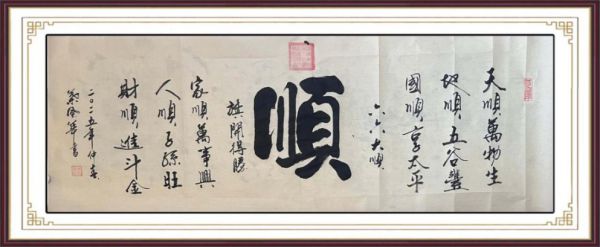 天順萬物生
地順五谷豐
國順享太平
六六大順
順
旗開得勝
家順萬事興
人順子孫旺
財順進斗金
二〇二五年仲春